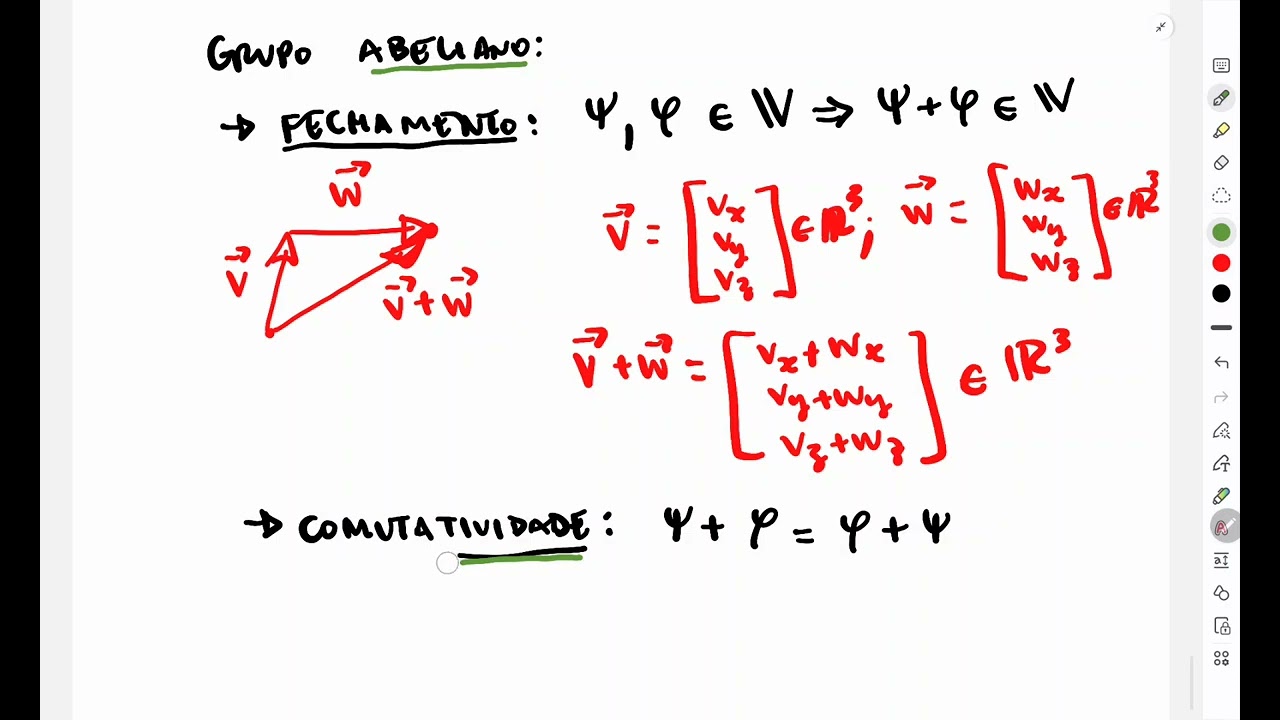 GRUPO ABELIANO:
→ FECHAMENTO: Ψ, φ ∈ 𝕍 ⇒ Ψ + φ ∈ 𝕍
w⃗
v⃗
v⃗ + w⃗
v⃗ = [vx vy vz] ∈ ℝ³; w⃗ = [wx wy wz] ∈ ℝ³
v⃗ + w⃗ = [vx + wx vy + wy vz + wz] ∈ ℝ³
→ COMUTATIVIDADE: Ψ + φ = φ + Ψ